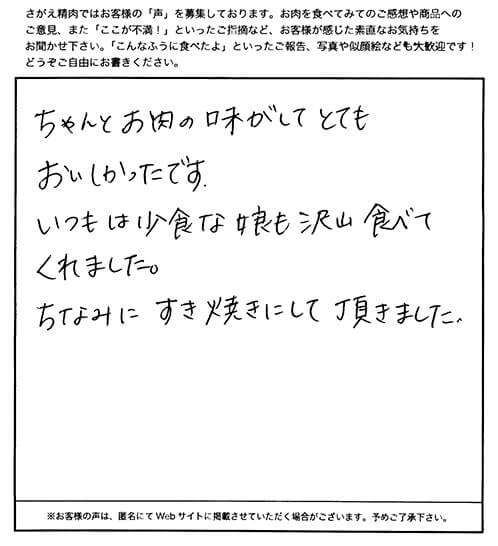 さがえ精肉ではお客様の「声」を募集しております。お肉を食べてみてのご感想や商品への
ご意見、また「ここが不満！」といったご指摘など、お客様が感じた素直なお気持ちを
お聞かせ下さい。「こんなふうに食べたよ」といったご報告、写真や似顔絵なども大歓迎です！
どうぞご自由にお書きください。
ちゃんとお肉の味がしてとても
おいしかったです.
いつもは少食な娘も沢山食べて
くれました。
ちなみにすき焼きにして頂きました.
※お客様の声は、匿名にてWebサイトに掲載させていただく場合がございます。予めご了承下さい。